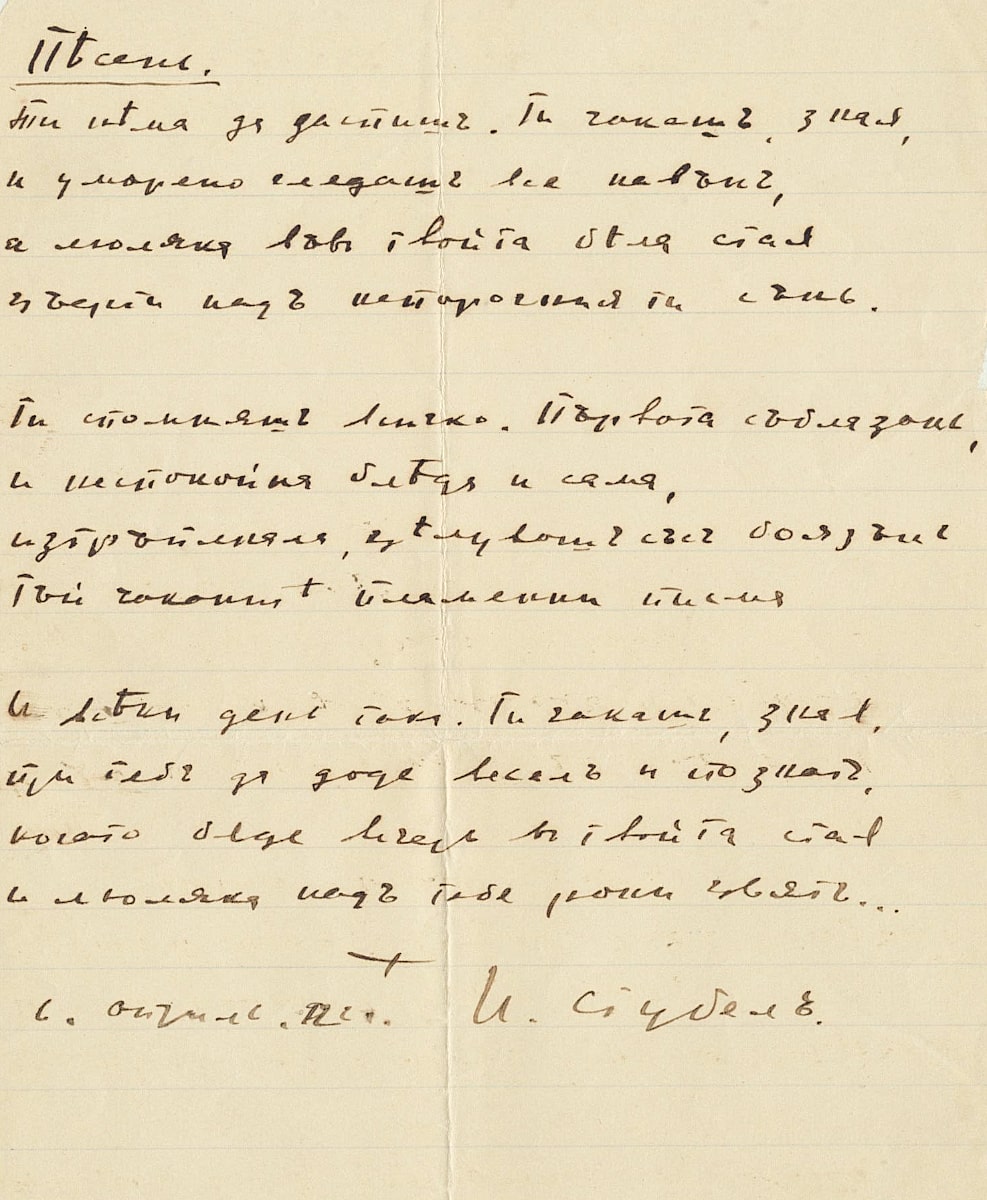 Пѣсень.
Ти нѣма да доспишъ. Ти чакашъ, зная,
и уморено гледашъ все навънъ,
а люляка въвъ твойта бѣла стая
цъфти надъ непорочния ти сънь.
Ти спомняшъ всичко. Първата съблазънь,
и неспокойна блѣда и сама,
изтръпнала, цѣлувашъ съсъ боязънь
пламенни писма
И всѣки день така. Ти чакашъ, зная,
при тебъ да доде веселъ и познатъ,
когато бѫде вечерь въ твойта стая
и люляка надъ тебе рони цвятъ...
6. априлъ.
И. Стубелъ.